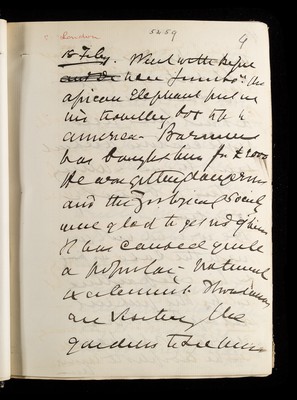 London
5259
4
18 Feby. Went with Hope
and to see Jumbo the
African Elephant put in
his travelling box to go to
America - Barnum
has bought him for £2000
He was getting dangerous
and the Zoological Society
were glad to get rid of him
It has caused quite
a popular - national
excitement Thousands
are visiting the
gardens to see him